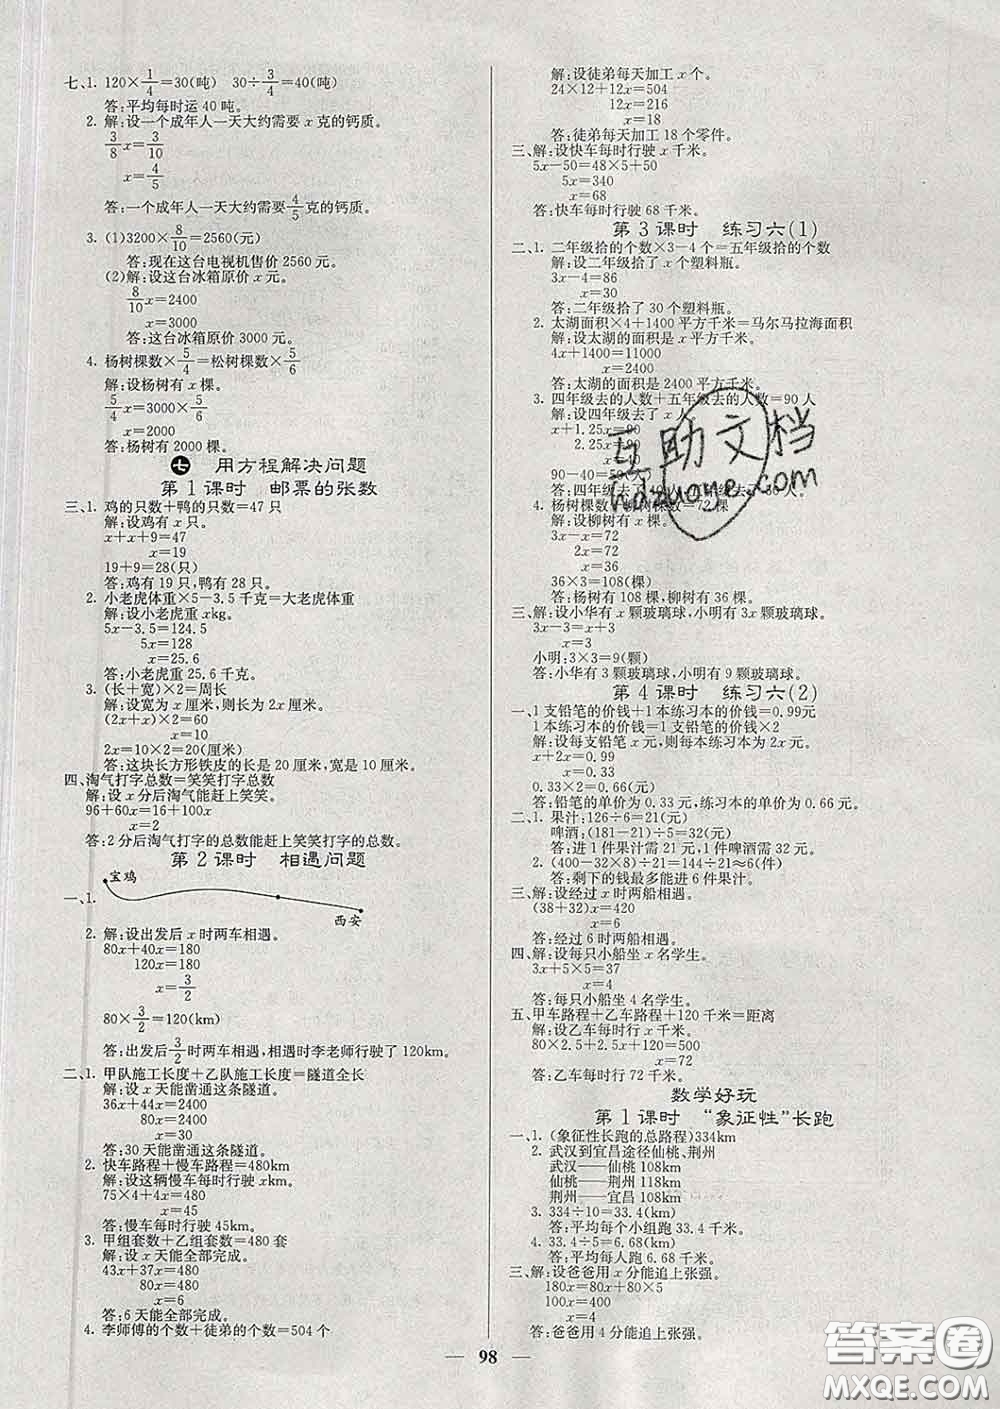 七、1. 120×1/4=30(吨)　30÷3/4=40(吨)
答:平均每时运 40 吨。
2. 解:设一个成年人一天大约需要 x 克的钙质。
3/8 x=3/10
x=4/5
答:一个成年人一天大约需要4/5克的钙质。
3. (1)3200×8/10=2560(元)
答:现在这台电视机售价 2560 元。
(2)解:设这台冰箱原价 x 元。
8/10 x=2400
x=3000
答:这台冰箱原价 3000 元。
4. 杨树棵数×5/4=松树棵数×5/6
解:设杨树有 x 棵。
5/4 x=3000×5/6
x=2000
答:杨树有 2000 棵。
七 用方程解决问题
第 1 课时　邮票的张数
三、1. 鸡的只数+鸭的只数=47 只
解:设鸡有 x 只。
x+x+9=47
x=19
19+9=28(只)
答:鸡有 19 只,鸭有 28 只。
2. 小老虎体重×5-3.5 千克=大老虎体重
解:设小老虎重 xkg。
5x-3.5=124.5
5x=128
x=25.6
答:小老虎重 25.6 千克。
3. (长+宽)×2=周长
解:设宽为 x 厘米,则长为 2x 厘米。
(2x+x)×2=60
x=10
2x=10×2=20(厘米)
答:这块长方形铁皮的长是 20 厘米,宽是 10 厘米。
四、淘气打字总数=笑笑打字总数
解:设 x 分后淘气能赶上笑笑。
96+60x=16+100x
x=2
答:2 分后淘气打字的总数能赶上笑笑打字的总数。
第 2 课时　相遇问题
一、1. 宝鸡 西安
2. 解:设出发后 x 时两车相遇。
80x+40x=180
120x=180
x=3/2
80×3/2=120(km)
答:出发后3/2时两车相遇,相遇时李老师行驶了 120km。
二、1. 甲队施工长度+乙队施工长度=隧道全长
解:设 x 天能凿通这条隧道。
36x+44x=2400
80x=2400
x=30
答:30 天能凿通这条隧道。
2. 快车路程+慢车路程=480km
解:设这辆慢车每时行驶 x 千米。
75×4+4x=480
x=45
答:慢车每时行驶 45km。
3. 甲组套数+乙组套数=480 套
解:设 x 天能全部完成。
43x+37x=480
80x=480
x=6
答:6 天能全部完成。
4. 李师傅的个数+徒弟的个数=504 个
解:设徒弟每天加工 x 个。
24×12+12x=504
12x=216
x=18
答:徒弟每天加工 18 个零件。
三、解:设快车每时行驶 x 千米。
5x-50=48×5+50
5x=340
x=68
答:快车每时行驶 68 千米。
第 3 课时　练习六(1)
二、1. 二年级拾的个数×3-4 个=五年级拾的个数
解:设二年级拾了 x 个塑料瓶。
3x-4=86
x=30
答:二年级拾了 30 个塑料瓶。
2. 太湖面积×4+1400 平方千米=马尔马拉海面积
解:设太湖的面积是 x 平方千米。
4x+1400=11000
x=2400
答:太湖的面积是 2400 平方千米。
3. 四年级去的人数+五年级去的人数=90 人
解:设四年级去了 x 人。
x+1.25x=90
2.25x=90
90-40=50
答:四年级去了 人。
4. 杨树棵数 柳树棵数=72 棵
解:设柳树有 x 棵。
3x-x=72
2x=72
x=36
36×3=108(棵)
答:杨树有 108 棵,柳树有 36 棵。
三、解:设小华有 x 颗玻璃球,小明有 3x 颗玻璃球。
3x-3=x+3
x=3
小明:3×3=9(颗)
答:小华有 3 颗玻璃球,小明有 9 颗玻璃球。
第 4 课时　练习六(2)
一、1 支铅笔的价钱+1 本练习本的价钱=0.99元
1 本练习本的价钱=1 支铅笔的价钱×2
解:设每支铅笔 x 元,则每本练习本为 2x 元。
x+2x=0.99
x=0.33
0.33×2=0.66(元)
答:铅笔的单价为 0.33 元,练习本的单价为 0.66 元。
二、1. 果汁:126÷6=21(元)
啤酒:(181-21)÷5=32(元)
答:进 1 件果汁需 21 元,1 件啤酒需 32 元。
2. (400-32×8)÷21=144÷21≈6(件)
答:剩下的钱最多能进 6 件果汁。
三、解:设经过 x 时两船相遇。
(38+32)x=420
x=6
答:经过 6 时两船相遇。
四、解:设每只小船坐 x 名学生。
3x+5×5=37
x=4
答:每只小船坐 4 名学生。
五、甲车路程+乙车路程+120 千米=距离
解:设乙车每时行 x 千米。
80×2.5+2.5x+120=500
x=72
答:乙车每时行 72 千米。
数学好玩
第 1 课时　“象征性”长跑
一、1. (象征性长跑的总路程)334km
2. 武汉到宜昌途径仙桃、荆州
武汉——仙桃 108km
仙桃——荆州 118km
荆州——宜昌 108km
3. 334÷10=33.4(km)
答:平均每个小组跑 33.4 千米。
4. 33.4÷5=6.68(km)
答:平均每人跑 6.68 千米。
三、解:设爸爸用 x 分能追上张强。
180x=80x+400
100x=400
x=4
答:爸爸用 4 分能追上张强。
— 98 —
互助文档
hdzuoye.com
答案圈
MXQE.COM